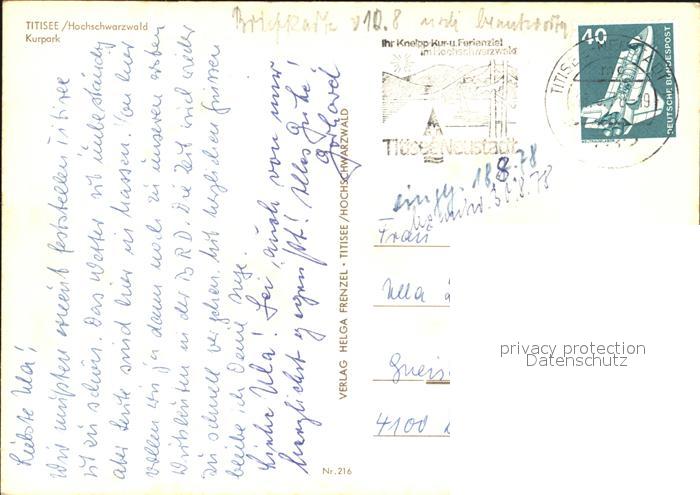 TITISEE / Hochschwarzwald
Kurpark
Briefkarte v 10.8 noch beantworten
Ihr Kneipp-Kur-u.Ferienziel
im Hochschwarzwald
Titisee Neustadt
TITISEE-NEUSTADT
40
DEUTSCHE BUNDESPOST
eingg. 18.8.78
beantw. 31.8.78
Liebste Ula!
Wir mußten erneut feststellen Titisee
ist zu schön. Das Wetter ist unbeständig
aber Leute sind hier in Massen. Von hier
wollen wir ja dann noch zu unseren
in der BRD. Die Zeit wird wieder
zu schnell vergehen. Mit herzlichen Grüssen
bleibe ich Deine
Liebe Ula! Sei auch von mir
herzlichst gegrüßt! Alles Gute!
Gerhard
VERLAG HELGA FRENZEL - TITISEE / HOCHSCHWARZWALD
Nr. 216
Frau
Ulla
Gneis
4100
privacy protection
Datenschutz